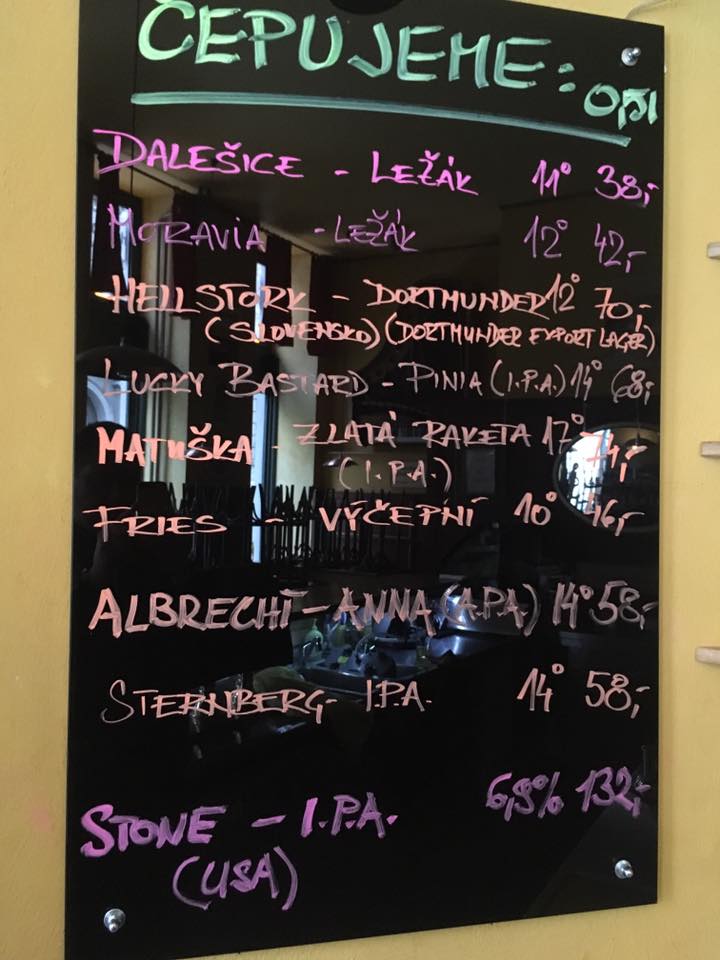 ČEPUJEME: 0,5l
DALEŠICE - LEŽÁK 11° 38,-
MORAVIA - LEŽÁK 12° 42,-
HELLSTORK - DORTMUNDER 12° 70,-
(SLOVENSKO) (DORTMUNDER EXPORT LAGER)
LUCKY BASTARD - PINIA (I.P.A.) 14° 68,-
MATUŠKA - ZLATÁ RAKETA 17° 74,-
(I.P.A.)
FRIES - VÝČEPNÍ 10° 46,-
ALBRECHT - ANNA (A.P.A.) 14° 58,-
STERNBERG - I.P.A. 14° 58,-
STONE - I.P.A. 6,9% 132,-
(USA)